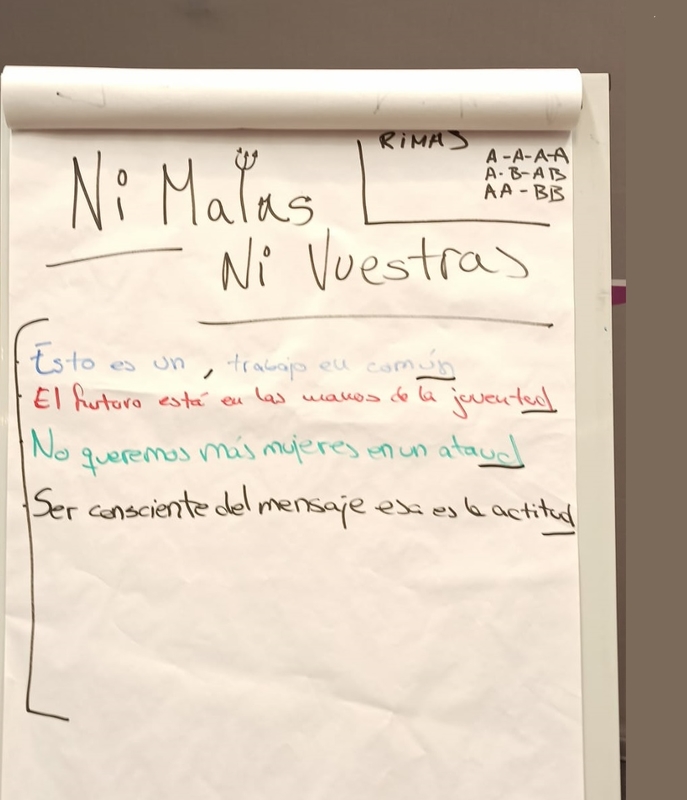 RIMAS
A-A-A-A
A-B-AB
AA-BB
Ni Malas
Ni Vuestras
Esto es un, trabajo en común
El futuro está en las manos de la juventud
No queremos más mujeres en un ataud
Ser consciente del mensaje esa es la actitud